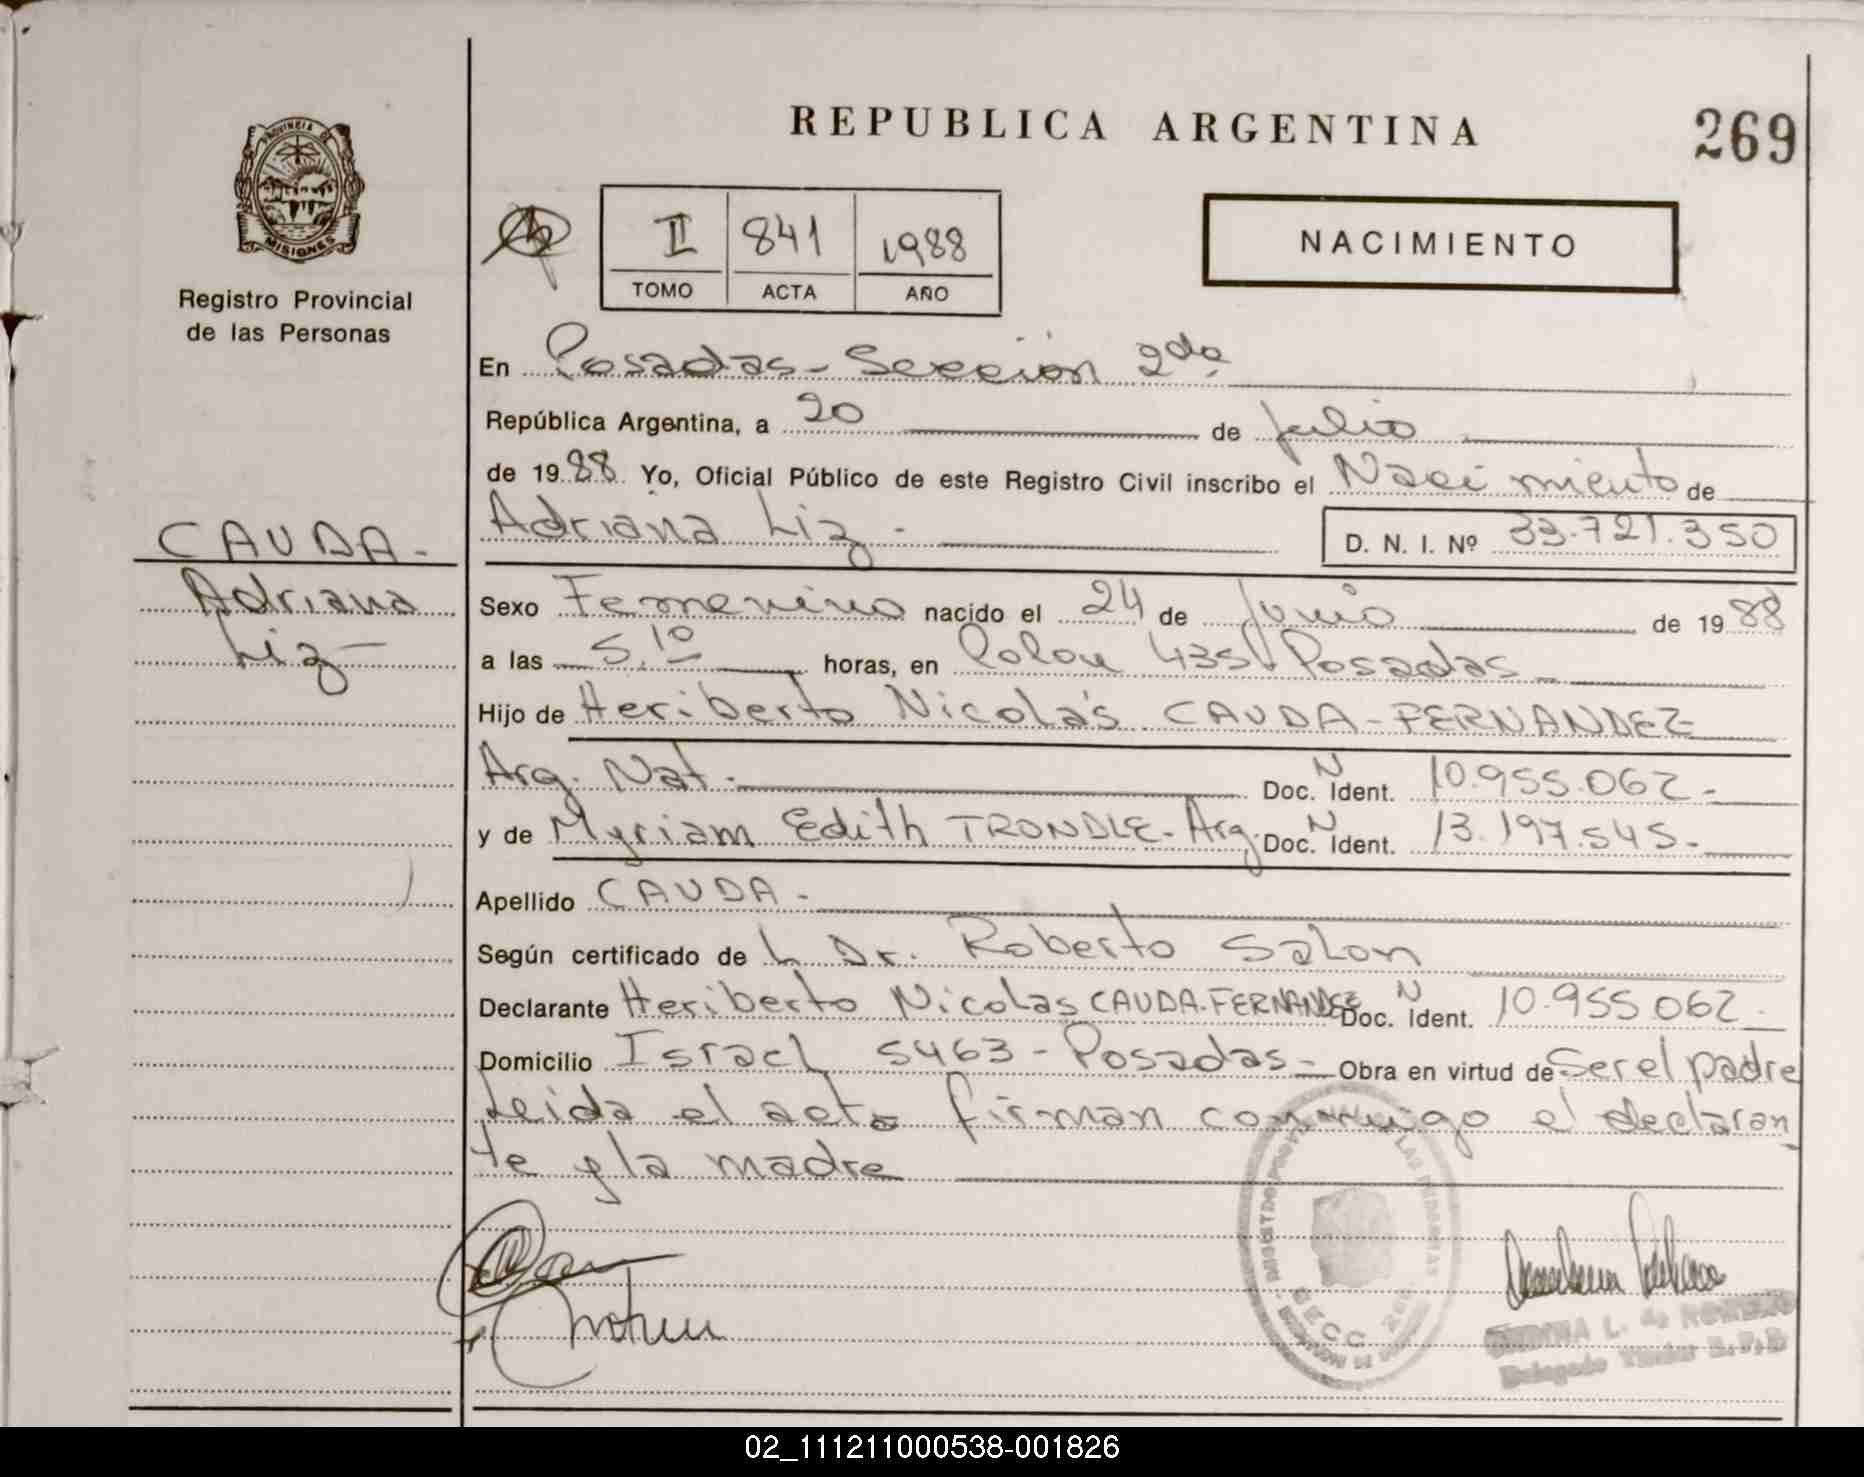 REPUBLICA ARGENTINA
269
PROVINCIA DE
MISIONES
Registro Provincial
de las Personas
II 841 1988
TOMO ACTA AÑO
NACIMIENTO
En Posadas - Sección 2da
República Argentina, a 20 de Julio
de 1988 Yo, Oficial Público de este Registro Civil inscribo el Nacimiento de
Adriana Liz - D. N. I. Nº 33.721.350
CAUDA -
Adriana
Liz -
Sexo Femenino nacido el 24 de Junio de 1988
a las 5.10 horas, en Colon 435 Posadas
Hijo de Heriberto Nicolás CAUDA - FERNANDEZ
Arg. Nat. Doc. N Ident. 10.955.062 -
y de Myriam Edith TRONDLE - Arg. Doc. N Ident. 13.197.545 -
Apellido CAUDA -
Según certificado de L Dr. Roberto Salon
Declarante Heriberto Nicolas CAUDA - FERNANDEZ Doc. N Ident. 10.955.062
Domicilio Israel 5463 - Posadas - Obra en virtud de ser el padre
Leida el acta firman conmigo el declaran
te y la madre
L. de
Delegado
02_111211000538-001826